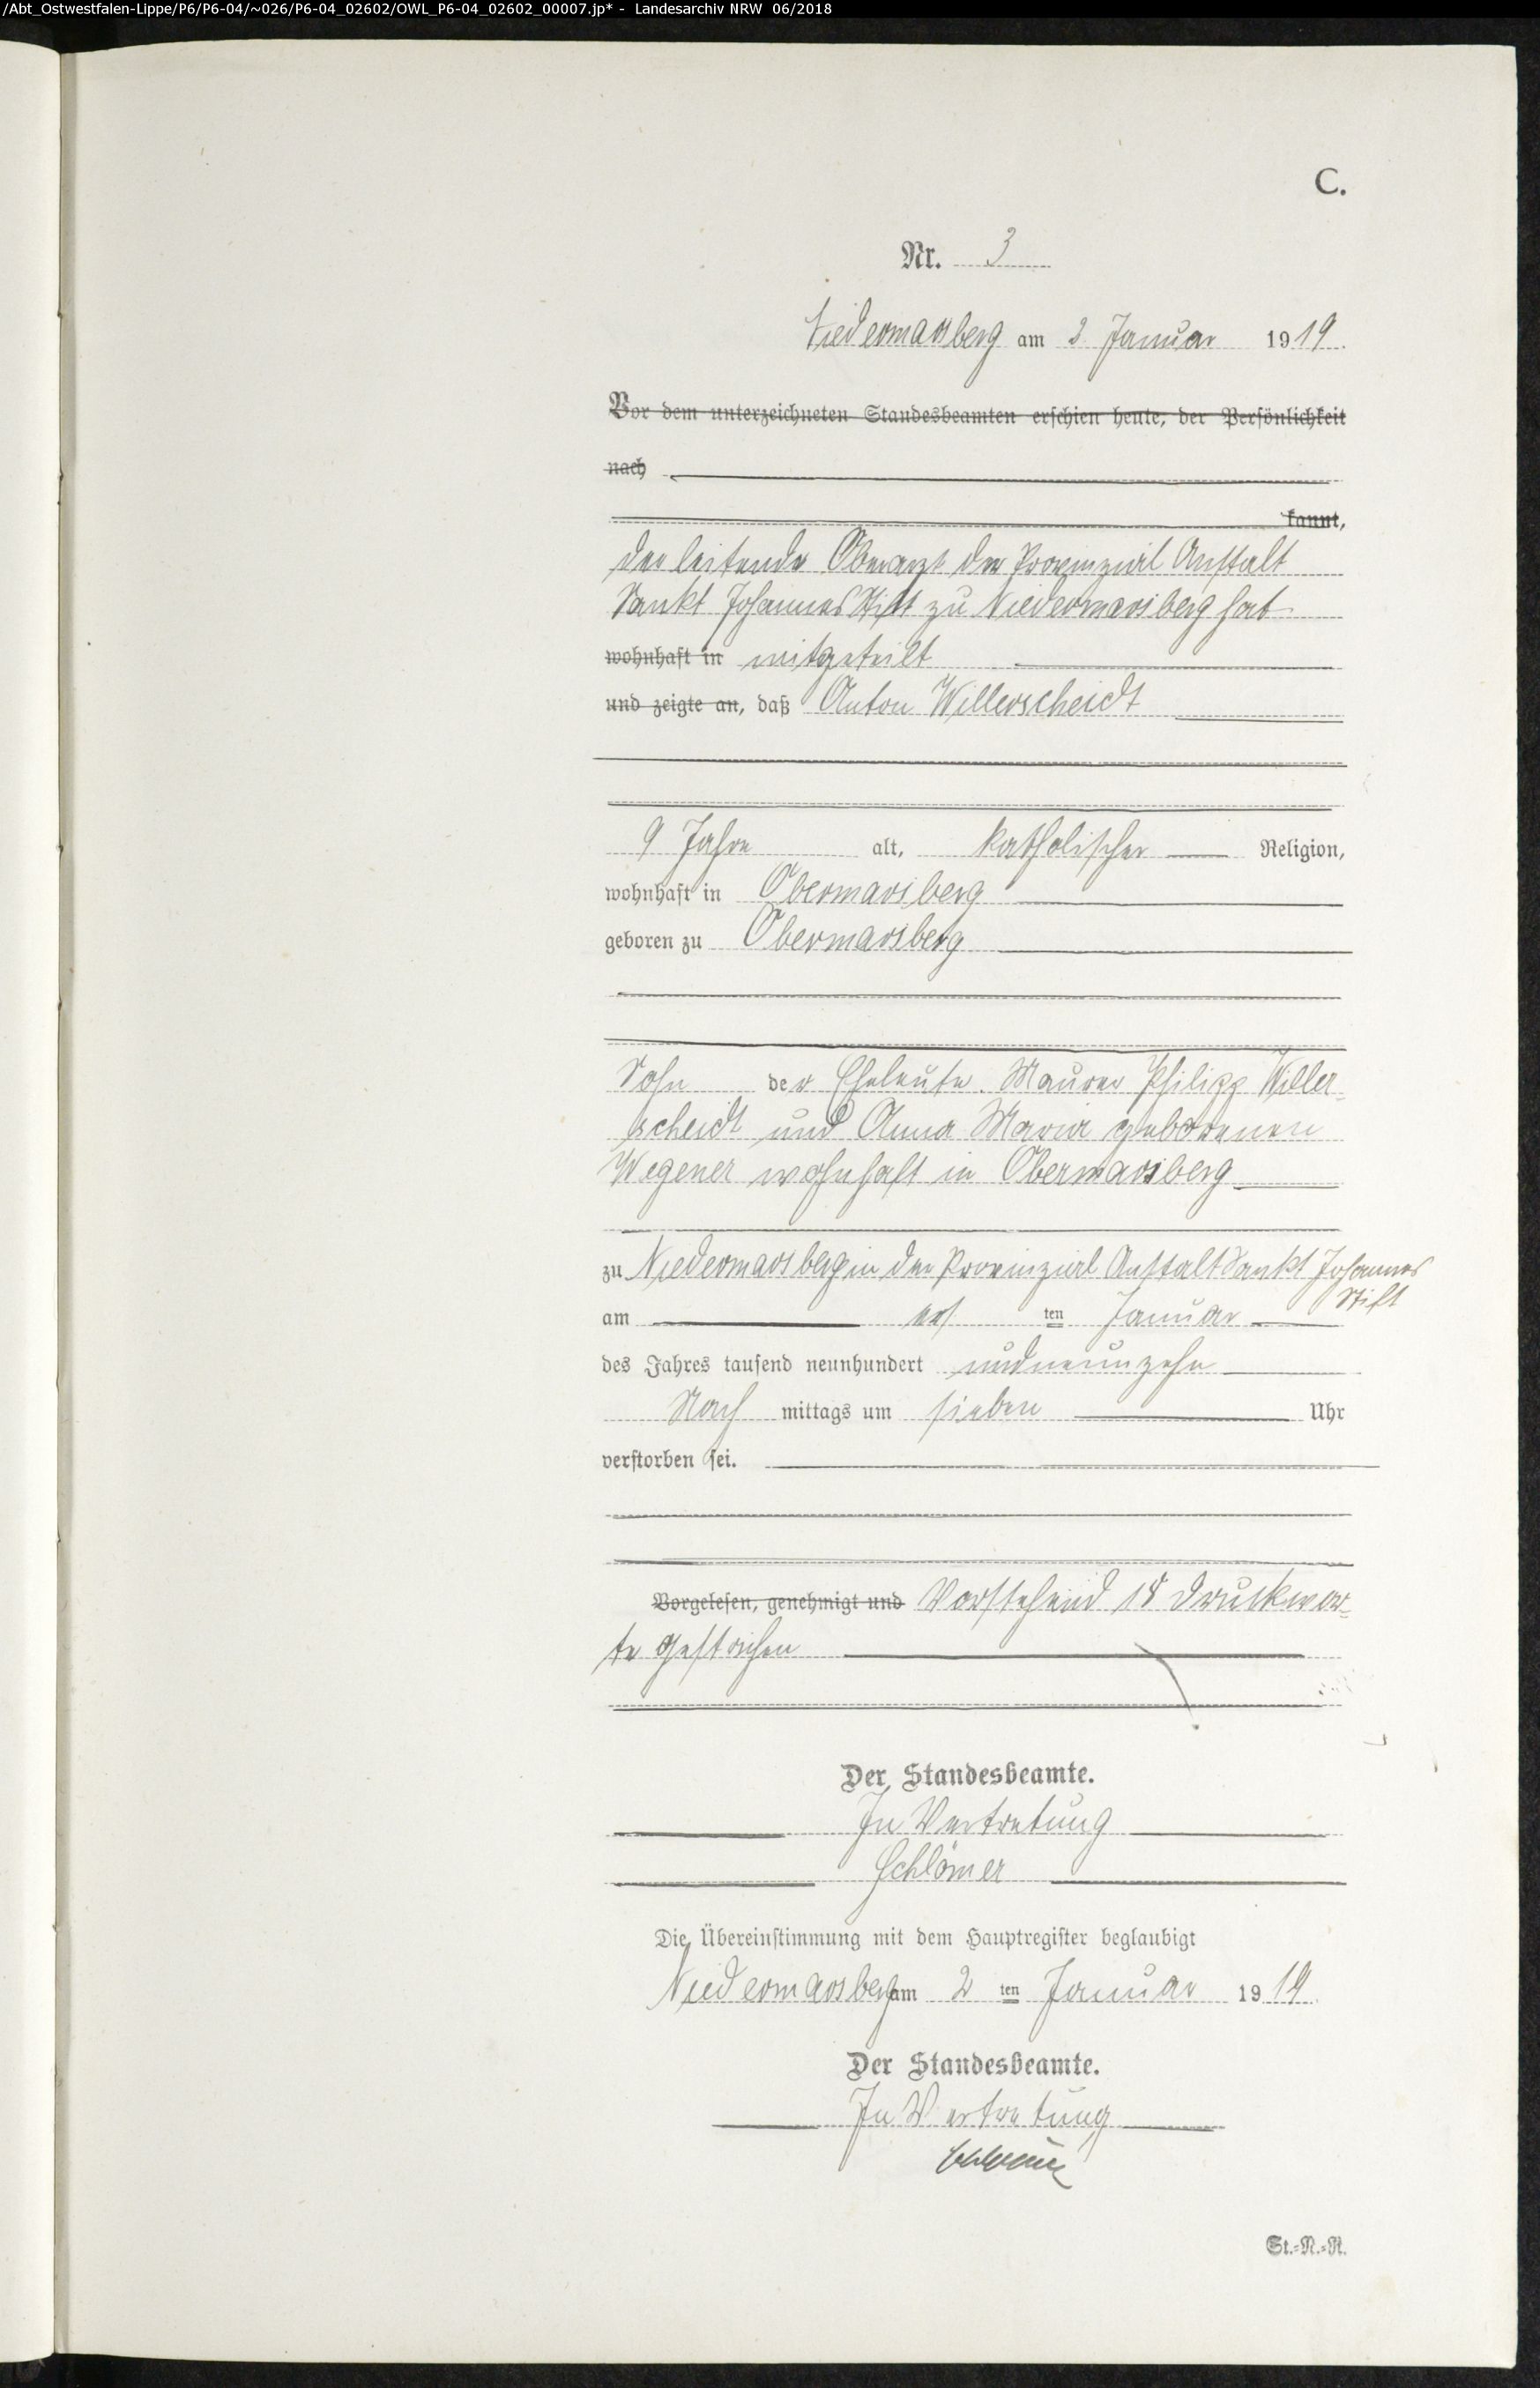 /Abt_Ostwestfalen-Lippe/P6/P6-04/~026/P6-04_02602/OWL_P6-04_02602_00007.jp* - Landesarchiv NRW 06/2018
C.
Nr. 3
Niedermarsberg am 2 Januar 1919.
Vor dem unterzeichneten Standesbeamten erschien heute, der Persönlichkeit
nach
kannt,
der leitende Oberarzt der Provinzial Anstalt
Sankt Johannes Stift zu Niedermarsberg hat
wohnhaft in mitgeteilt
und zeigte an, daß Anton Willerscheidt
9 Jahre alt, katholischer Religion,
wohnhaft in Obermarsberg
geboren zu Obermarsberg
Sohn der Eheleute Maurer Philipp Willer-
scheidt und Anna Maria geborenen
Wegener wohnhaft in Obermarsberg
zu Niedermarsberg in der Provinzial Anstalt Sankt Johannes
Stift
am ersten Januar
des Jahres tausend neunhundert undneunzehn
Nachmittags um sieben Uhr
verstorben sei.
Vorgelesen, genehmigt und Vorstehend 18 Druckwor-
te gestrichen
Der Standesbeamte.
In Vertretung
Schlömer
Die Übereinstimmung mit dem Hauptregister beglaubigt
Niedermarsberg am 2ten Januar 1919.
Der Standesbeamte.
In Vertretung
St.-N.-R.